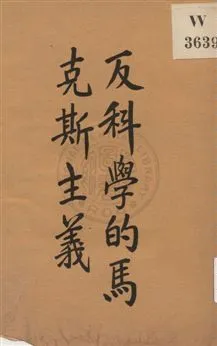 W
3639
反科學的馬
克斯主義